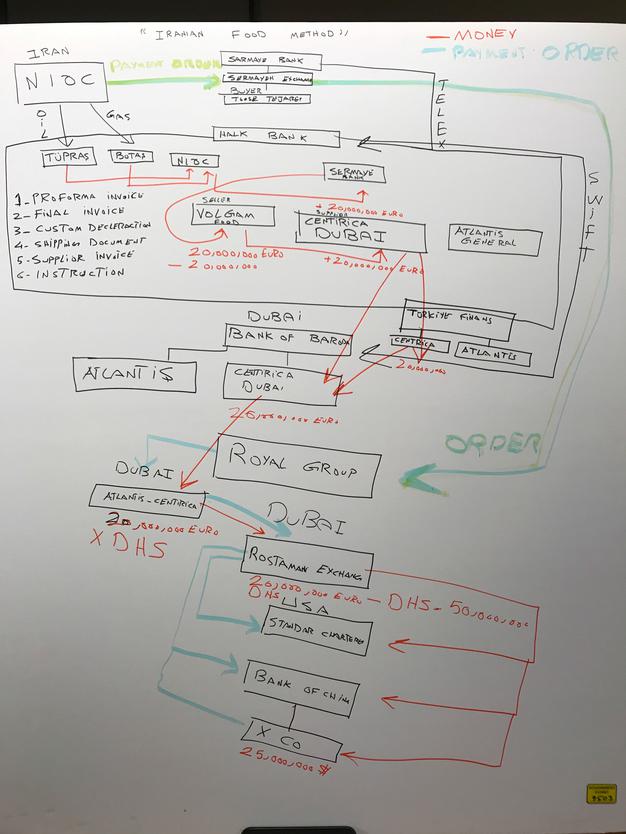 "IRANIAN FOOD METHOD"
— MONEY
— PAYMENT ORDER
IRAN
NIOC
PAYMENT ORDER
SARMAYE BANK
SERMAYEH EXCHANG
BUYER
TOOSE TEJARET
TELEX
OIL
GAS
HALK BANK
SWIFT
TÜPRAŞ
BOTAŞ
NIOC
SERMAYE
BANK
1- PROFORMA INVOICE
2- FINAL INVOICE
3- CUSTOM DECLERACTION
4- SHIPPING DOCUMENT
5- SUPPLIOR INVOICE
6- INSTRUCTION
SELLER
VOLGAM
FOOD
+ 20,000,000 EURO
SUPPLIOR
CENTIRICA
DUBAI
ATLANTIS
GENERAL
20,000,000 EURO
— 20,000,000
+20,000,000 EURO
TÜRKIYE FINANS
CENTRICA
ATLANTIS
20,000,000
DUBAI
BANK OF BARODA
ATLANTIS
CENTIRICA
DUBAI
20,000,000 EURO
ORDER
ROYAL GROUP
DUBAI
ATLANTIS-CENTIRICA
20,000,000 EURO
X DHS
DUBAI
ROSTAMAN EXCHANG
20,000,000 EURO — DHS - 50,000,000
DHS
USA
STANDAR CHARTERE
BANK OF CHIN
X CO
25,000,000 $
GOVERNMENT
EXHIBIT
9503